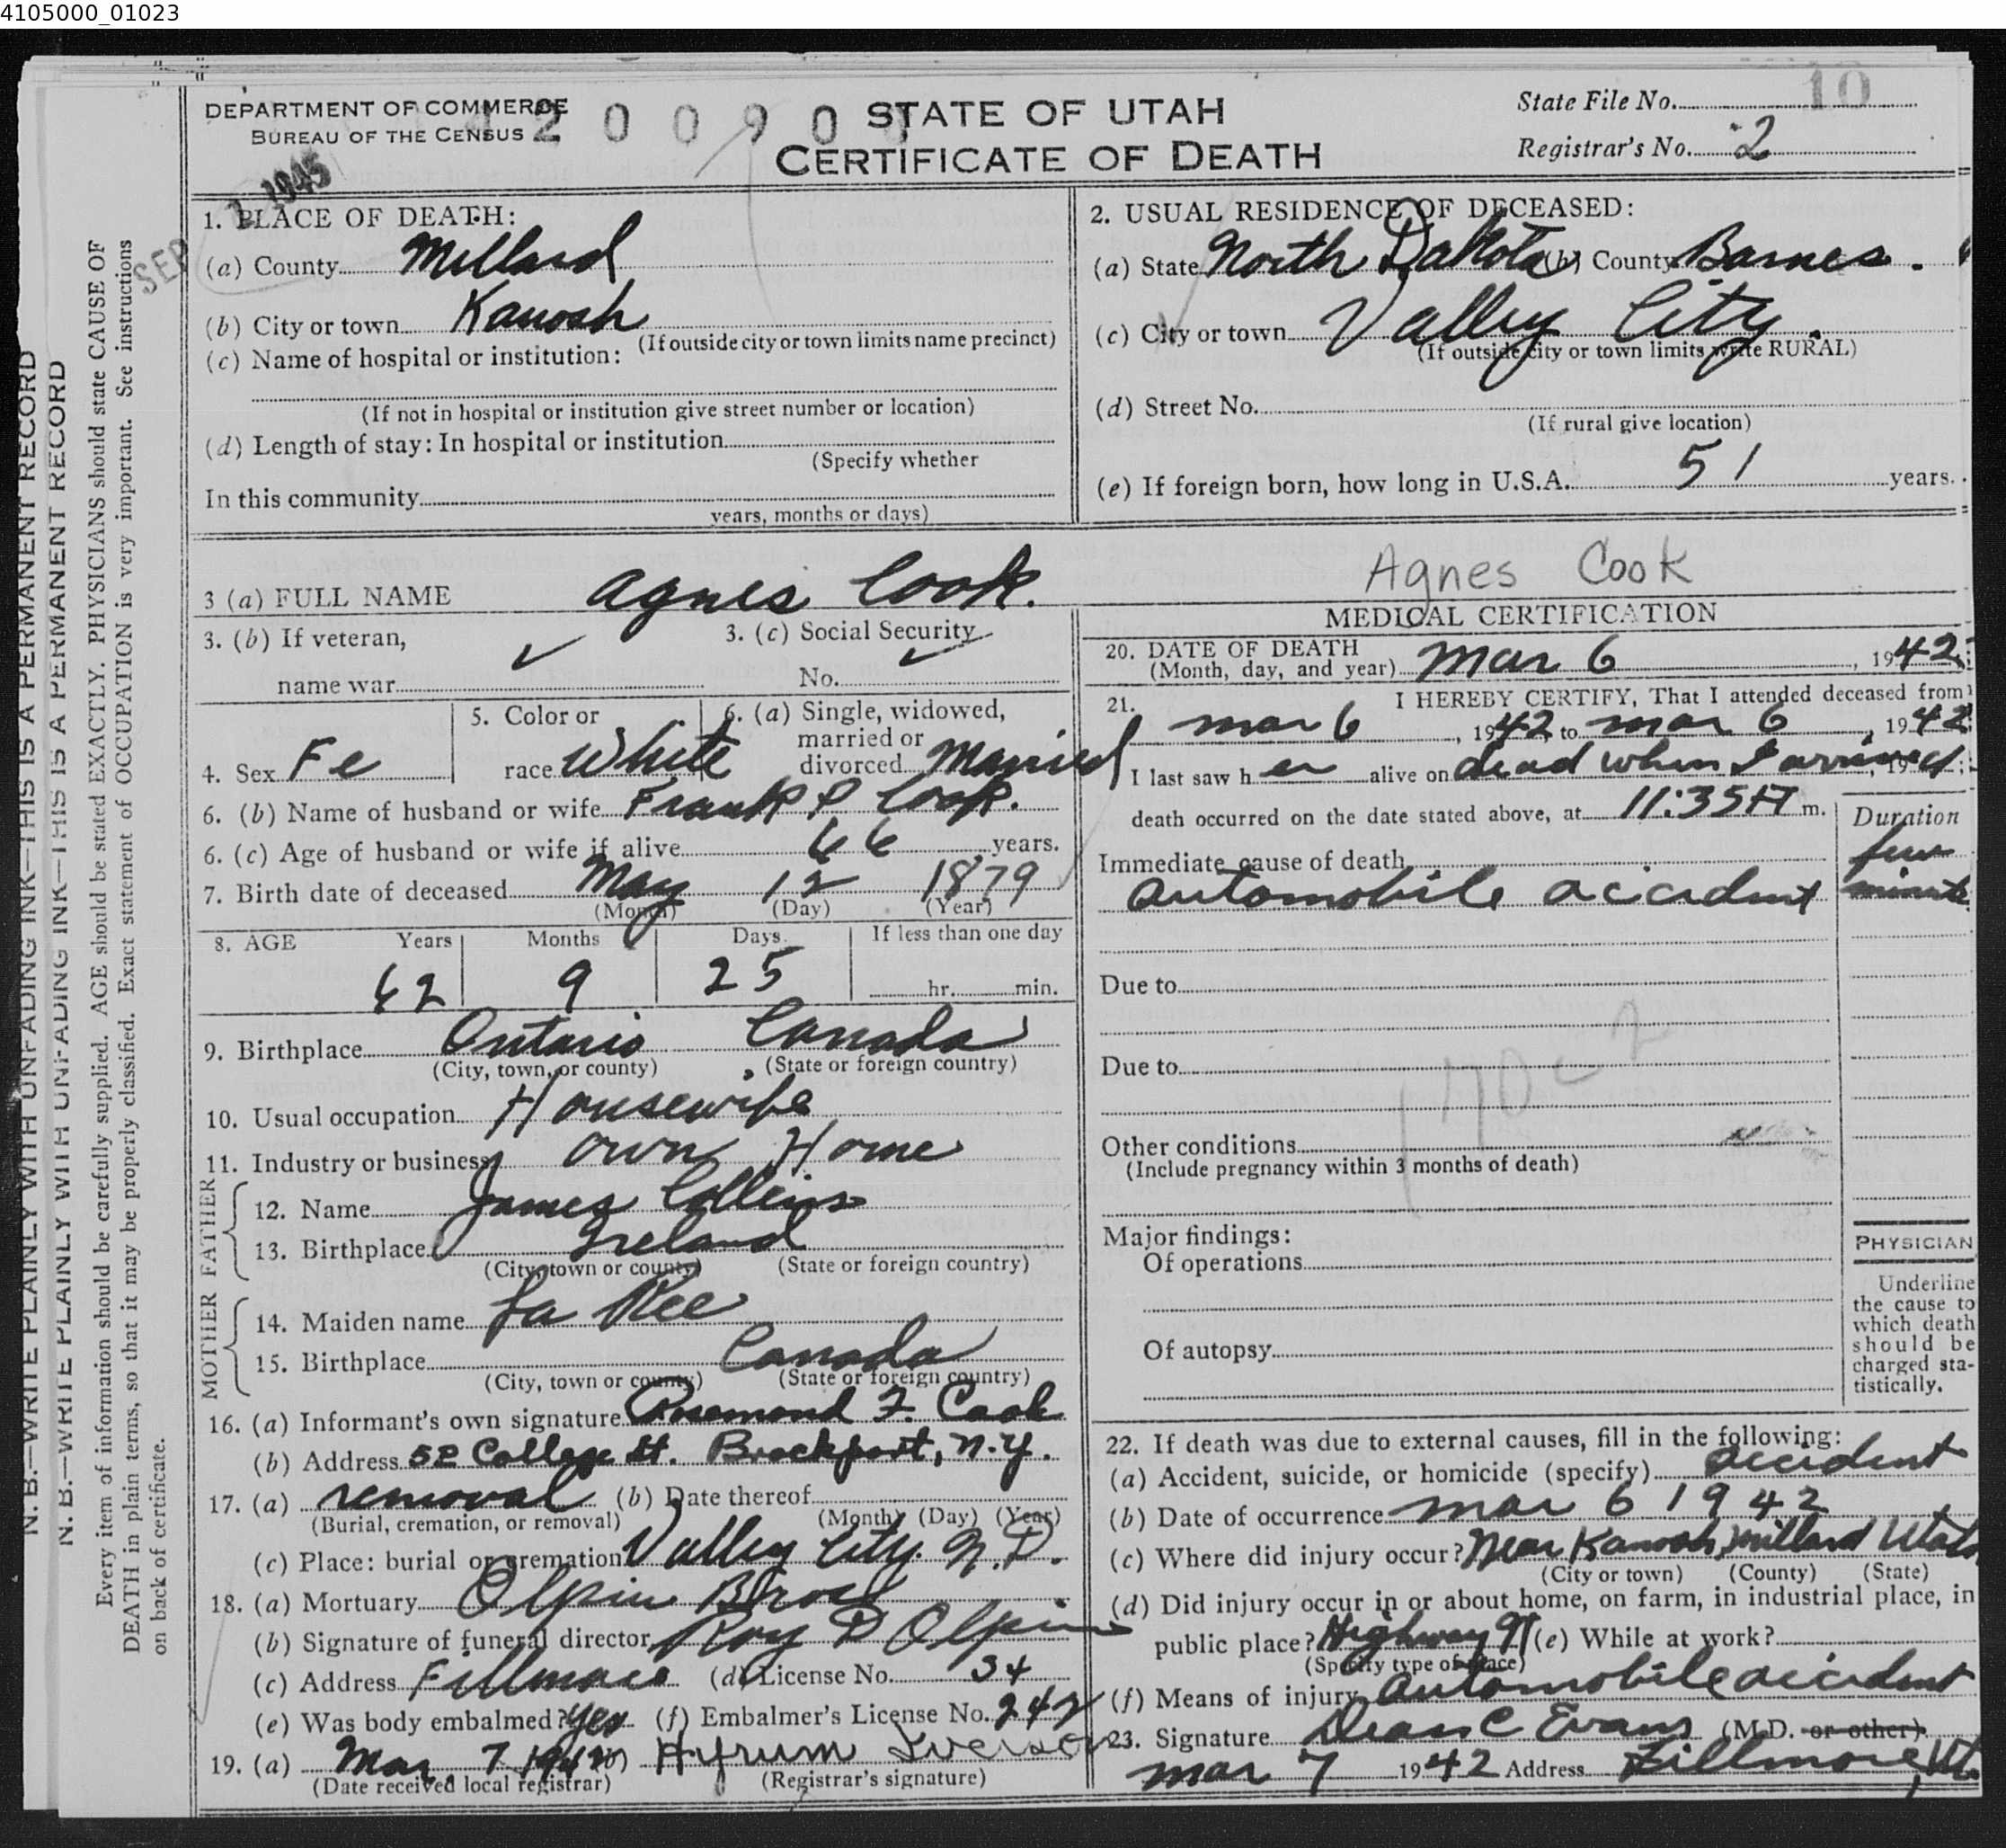 4105000_01023
DEPARTMENT OF COMMERCE
BUREAU OF THE CENSUS
STATE OF UTAH
CERTIFICATE OF DEATH
State File No. 10
Registrar's No. 2
SEP 1945
1. PLACE OF DEATH:
(a) County Millard
(b) City or town Kanosh
(If outside city or town limits name precinct)
(c) Name of hospital or institution:
(If not in hospital or institution give street number or location)
(d) Length of stay: In hospital or institution
(Specify whether
In this community
years, months or days)
2. USUAL RESIDENCE OF DECEASED:
(a) State North Dakota (b) County Barnes.
(c) City or town Valley City.
(If outside city or town limits write RURAL)
(d) Street No.
(If rural give location)
(e) If foreign born, how long in U.S.A. 51 years.
3 (a) FULL NAME Agnes Cook.
Agnes Cook
3. (b) If veteran,
name war
3. (c) Social Security
No.
4. Sex Fe
5. Color or
race White
6. (a) Single, widowed,
married or
divorced Married
6. (b) Name of husband or wife Frank P Cook.
6. (c) Age of husband or wife if alive 66 years.
7. Birth date of deceased May 12 1879
(Month) (Day) (Year)
8. AGE Years Months Days If less than one day
62 9 25 hr. min.
9. Birthplace Ontario Canada
(City, town, or county) (State or foreign country)
10. Usual occupation Housewife
11. Industry or business own Home
FATHER
12. Name James Collins
13. Birthplace Ireland
(City, town or county) (State or foreign country)
MOTHER
14. Maiden name La Kee
15. Birthplace Canada
(City, town or county) (State or foreign country)
16. (a) Informant's own signature Rosemond F. Cook
(b) Address 52 College St. Brockport, N.Y.
17. (a) removal (b) Date thereof
(Burial, cremation, or removal) (Month) (Day) (Year)
(c) Place: burial or cremation Valley City. N.D.
18. (a) Mortuary Olpin Bros
(b) Signature of funeral director Roy P Olpin
(c) Address Fillmore (d) License No. 34
(e) Was body embalmed? Yes (f) Embalmer's License No. 242
19. (a) Mar 7 1942 (b) Hyrum Iverson
(Date received local registrar) (Registrar's signature)
MEDICAL CERTIFICATION
20. DATE OF DEATH
(Month, day, and year) Mar 6, 1942
21. I HEREBY CERTIFY, That I attended deceased from
mar 6, 1942 to mar 6, 1942
I last saw her alive on dead when I arrived, 19
death occurred on the date stated above, at 11:35 A m.
Duration
Immediate cause of death
automobile accident few minutes
Due to
Due to
170c
Other conditions
(Include pregnancy within 3 months of death)
Major findings:
Of operations
Of autopsy
PHYSICIAN
Underline
the cause to
which death
should be
charged sta-
tistically.
22. If death was due to external causes, fill in the following:
(a) Accident, suicide, or homicide (specify) accident
(b) Date of occurrence mar 6 1942
(c) Where did injury occur? Near Kanosh, Millard Utah
(City or town) (County) (State)
(d) Did injury occur in or about home, on farm, in industrial place, in
public place? Highway 91 (e) While at work?
(Specify type of place)
(f) Means of injury Automobile accident
23. Signature Dean C Evans (M.D. or other)
mar 7 1942 Address Fillmore, Ut.
N. B.—WRITE PLAINLY WITH UNFADING INK—THIS IS A PERMANENT RECORD
N. B.—WRITE PLAINLY WITH UNFADING INK—THIS IS A PERMANENT RECORD
Every item of information should be carefully supplied. AGE should be stated EXACTLY. PHYSICIANS should state CAUSE OF
DEATH in plain terms, so that it may be properly classified. Exact statement of OCCUPATION is very important. See instructions
on back of certificate.